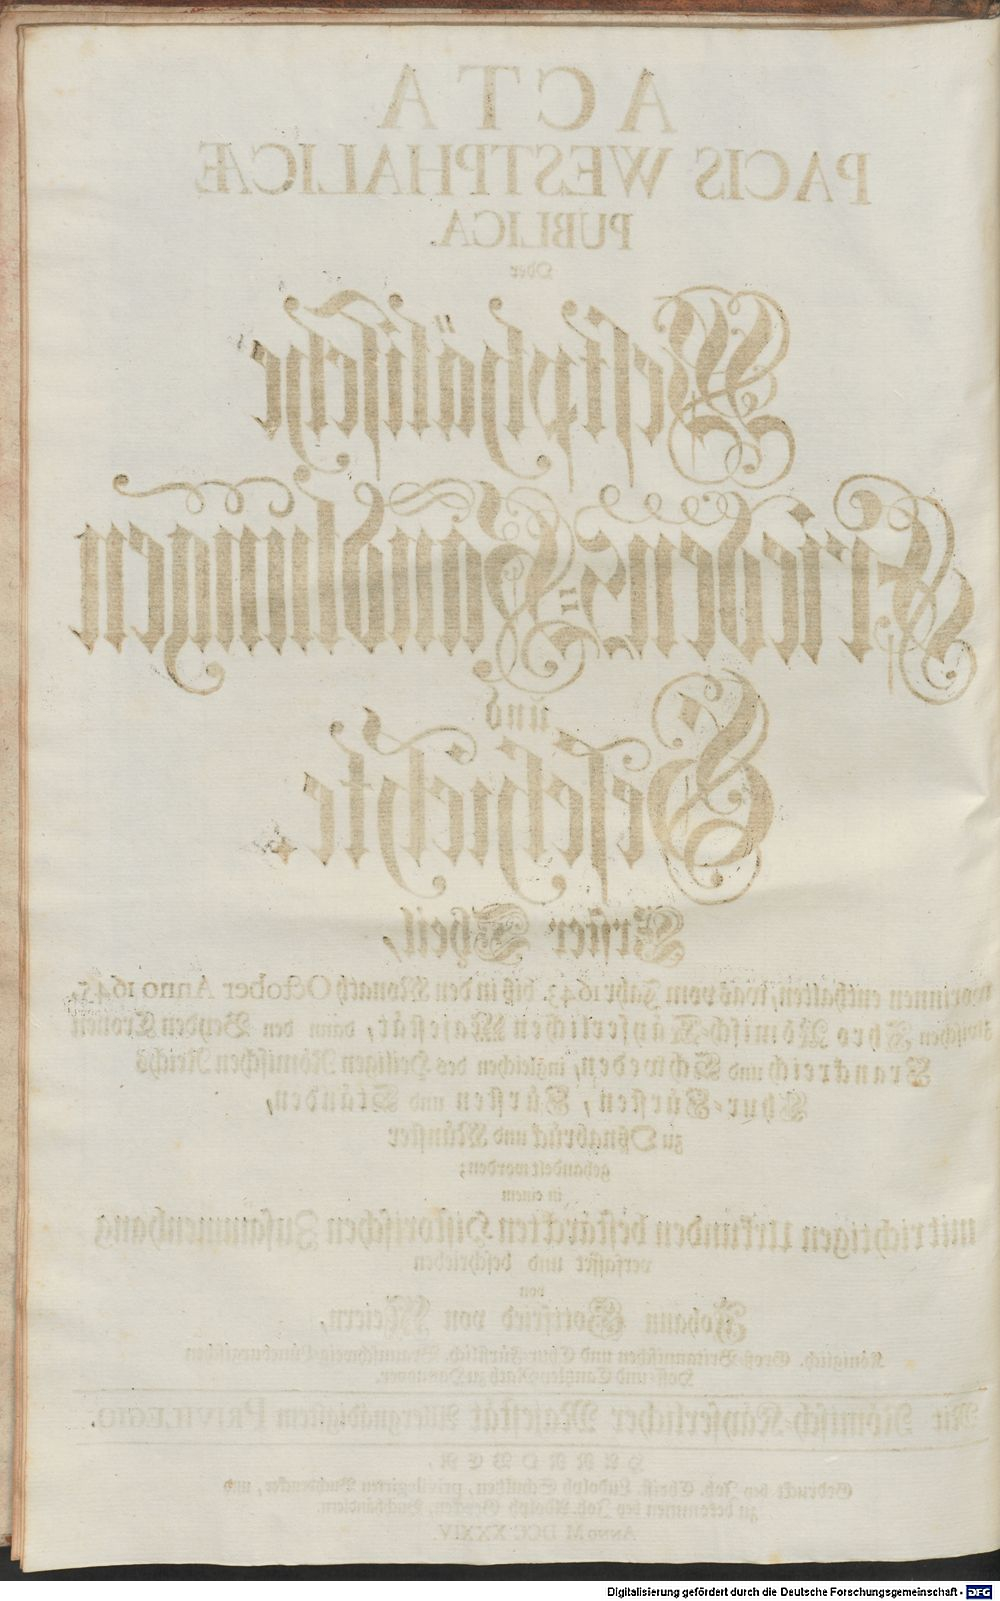 ACTA
PACIS WESTPHALICÆ
PUBLICA.
Oder
Westphälische
Friedens-Handlungen
und
Geschichte.
Erster Theil,
worinnen enthalten, was vom Jahr 1643. biß in den Monath October Anno 1645.
zwischen Ihro Römisch-Käyserlichen Majestät, dann den Beyden Cronen
Franckreich und Schweden, ingleichen des Heiligen Römischen Reichs
Chur-Fürsten, Fürsten und Ständen,
zu Oßnabrück und Münster
gehandelt worden;
in einem
mit richtigen Urkunden bestärckten Historischen Zusammenhang
verfasset und beschrieben
von
Johann Gottfried von Meiern,
Königlich. Groß-Britannischen und Chur-Fürstlich. Braunschweig-Lüneburgischen
Hoff- und Cantzley-Rath zu Hannover.
Mit Römisch-Käyserlicher Majestät Allergnädigstem PRIVILEGIO.
HANNOVER,
Gedruckt bey Joh. Christ. Ludolph Schultzen, privilegirten Buchdrucker, und
zu bekommen bey Joh. Adolph Gercken, Buchhändlern.
ANNO M DCC XXXIV.
Digitalisierung gefördert durch die Deutsche Forschungsgemeinschaft - DFG